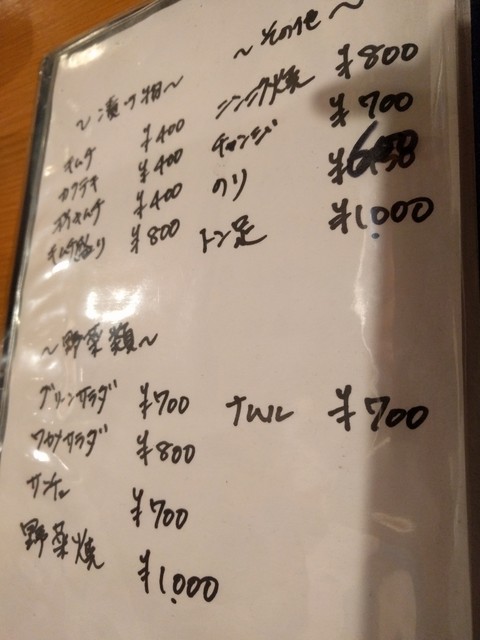 ～漬け物～
キムチ ¥400
カクテキ ¥400
オイキムチ ¥400
キムチ盛り ¥800
～その他～
ニンニク焼 ¥800
チャンジャ ¥700
のり
トン足 ¥1,000
～野菜類～
グリーンサラダ ¥700
ワカメサラダ ¥800
サンチュ ¥700
野菜焼 ¥1,000
ナムル ¥700